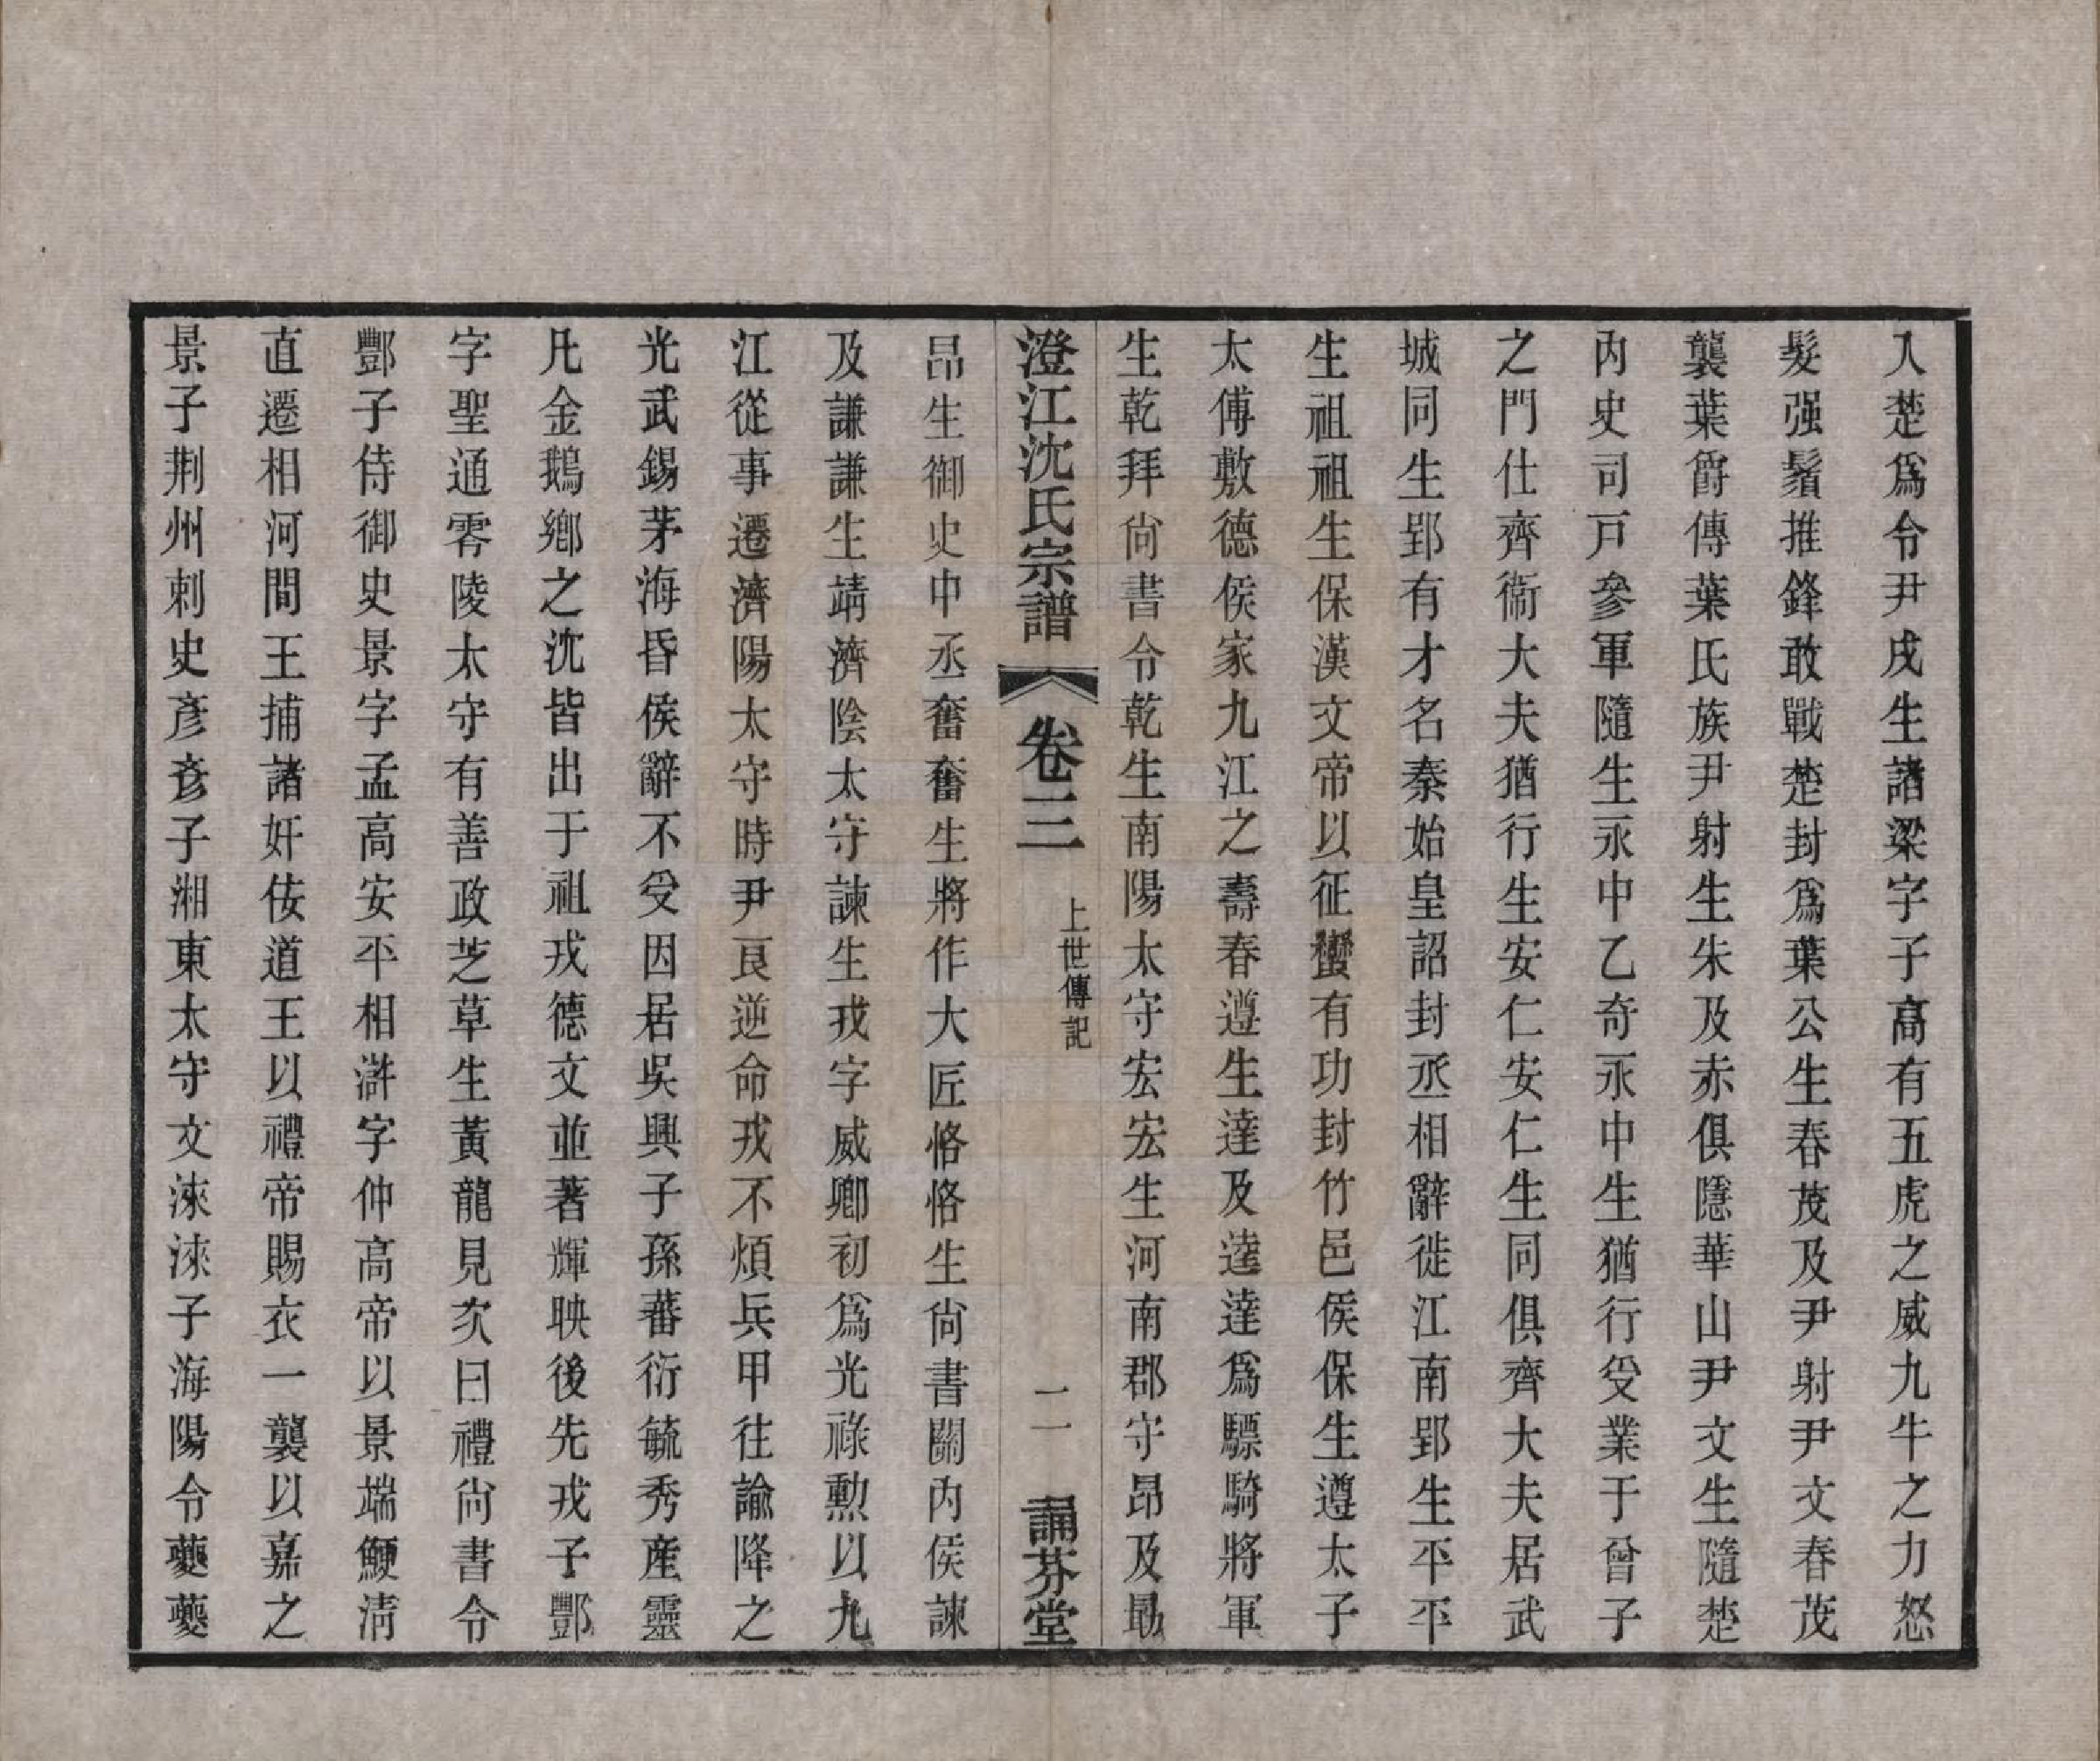 入楚爲令尹戌生諸梁字子高有五虎之威九牛之力怒
髮强鬚推鋒敢戰楚封爲葉公生春茂及尹射尹文春茂
襲葉爵傳葉氏族尹射生朱及赤俱隱華山尹文生隨楚
內史司戸參軍隨生永中乙奇永中生猶行受業于曾子
之門仕齊衞大夫猶行生安仁安仁生同俱齊大夫居武
城同生郢有才名秦始皇詔封丞相辭徙江南郢生平平
生祖祖生保漢文帝以征蠻有功封竹邑侯保生遵太子
太傅敷德侯家九江之壽春遵生達及逵達爲驃騎將軍
生乾拜尙書令乾生南陽太守宏宏生河南郡守昂及勗
澄江沈氏宗譜 卷三 上世傳記 二 誦芬堂
昂生御史中丞奮奮生將作大匠恪恪生尙書關內侯諫
及謙謙生靖濟陰太守諫生戎字威卿初爲光祿勲以九
江從事遷濟陽太守時尹良逆命戎不煩兵甲往諭降之
光武錫茅海昏侯辭不受因居吳興子孫蕃衍毓秀產靈
凡金鵝鄉之沈皆出于祖戎德文並著輝映後先戎子酆
字聖通零陵太守有善政芝草生黃龍見次曰禮尙書令
酆子侍御史景字孟高安平相滸字仲高帝以景端鯁淸
直遷相河間王捕諸奸佞道王以禮帝賜衣一襲以嘉之
景子荆州刺史彥彥子湘東太守文淶淶子海陽令蘷蘷